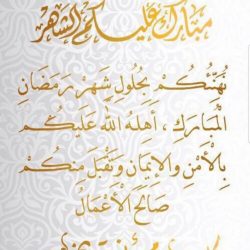 مبارك عليكم الشهر
نُهَنِّئُكُمْ بِحُلُولِ شَهْرِ رَمَضَانِ
المُبَارَكِ ، أَهِلهُ الله عَلَيكُم
بِالْأَمْنِ والإِيمَانِ وَتَقَبَلَ مِنكُمْ
صَالِحَ الأَعْمَالُ